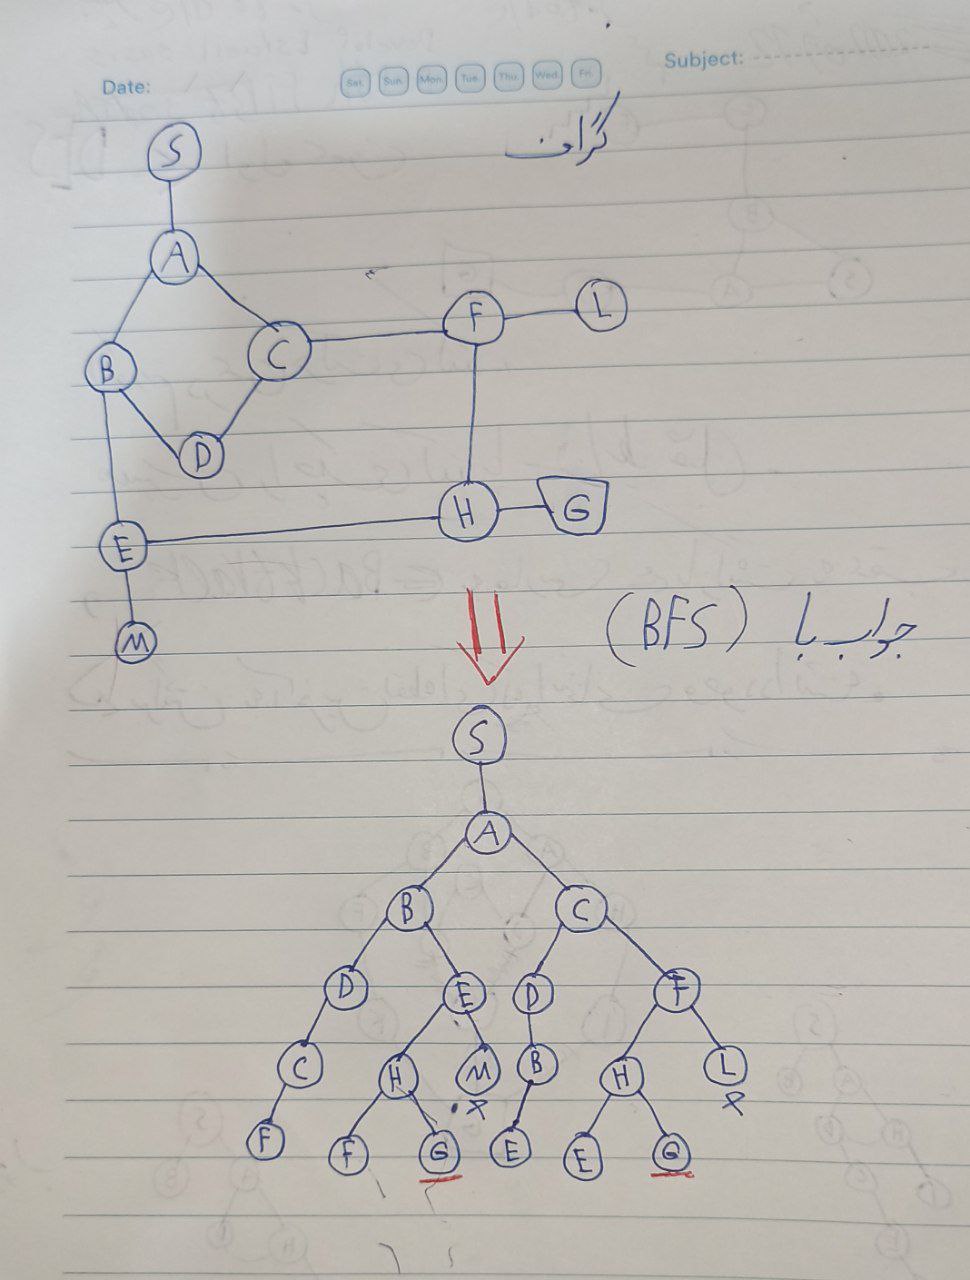 Date:
Sat. Sun. Mon. Tue. Thu. Wed. Fri.
Subject:
گراف
S
A
B C F L
D
E H G
M
جواب با (BFS)
S
A
B C
D E D F
C H M B H L
x x
F F G E E G